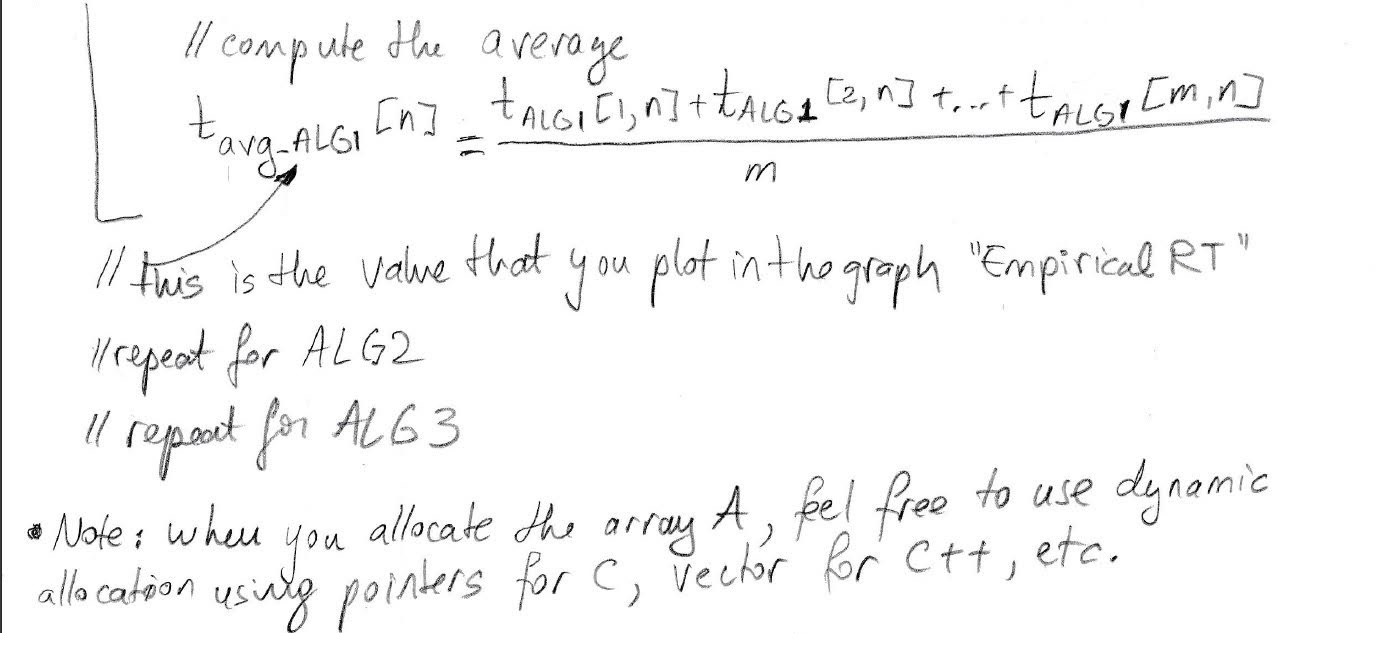 // compute the average
t_avg_ALG1 [n] = (t_ALG1 [1,n] + t_ALG1 [2,n] + ... + t_ALG1 [m,n]) / m
// this is the value that you plot in the graph "Empirical RT"
// repeat for ALG2
// repeat for ALG3
• Note: when you allocate the array A, feel free to use dynamic
allocation using pointers for C, vector for C++, etc.